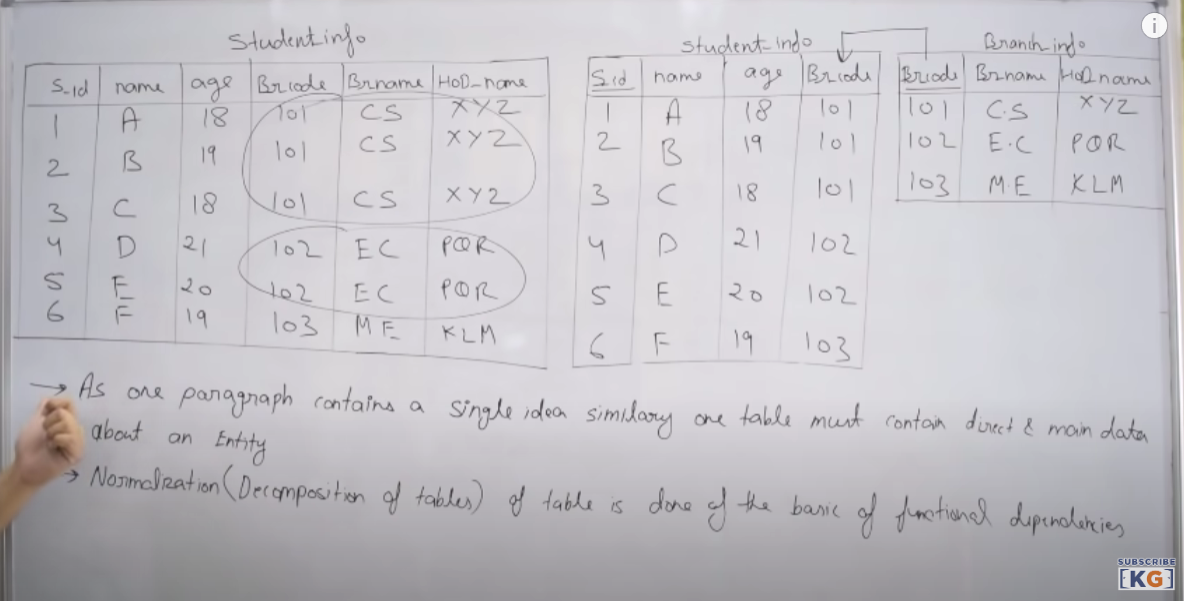 Studentinfo
S_id name age Brcode Brname HoD_name
1 A 18 101 CS XYZ
2 B 19 101 CS XYZ
3 C 18 101 CS XYZ
4 D 21 102 EC PQR
5 E 20 102 EC PQR
6 F 19 103 ME KLM
Student_info
S_id name age Brcode
1 A 18 101
2 B 19 101
3 C 18 101
4 D 21 102
5 E 20 102
6 F 19 103
Branch_info
Brcode Brname HoD name
101 C.S XYZ
102 E.C PQR
103 M.E KLM
→ As one paragraph contains a single idea similary one table must contain direct & main data
about an Entity
→ Normalization (Decomposition of tables) of table is done of the basic of functional dependencies
i
SUBSCRIBE
[KG]